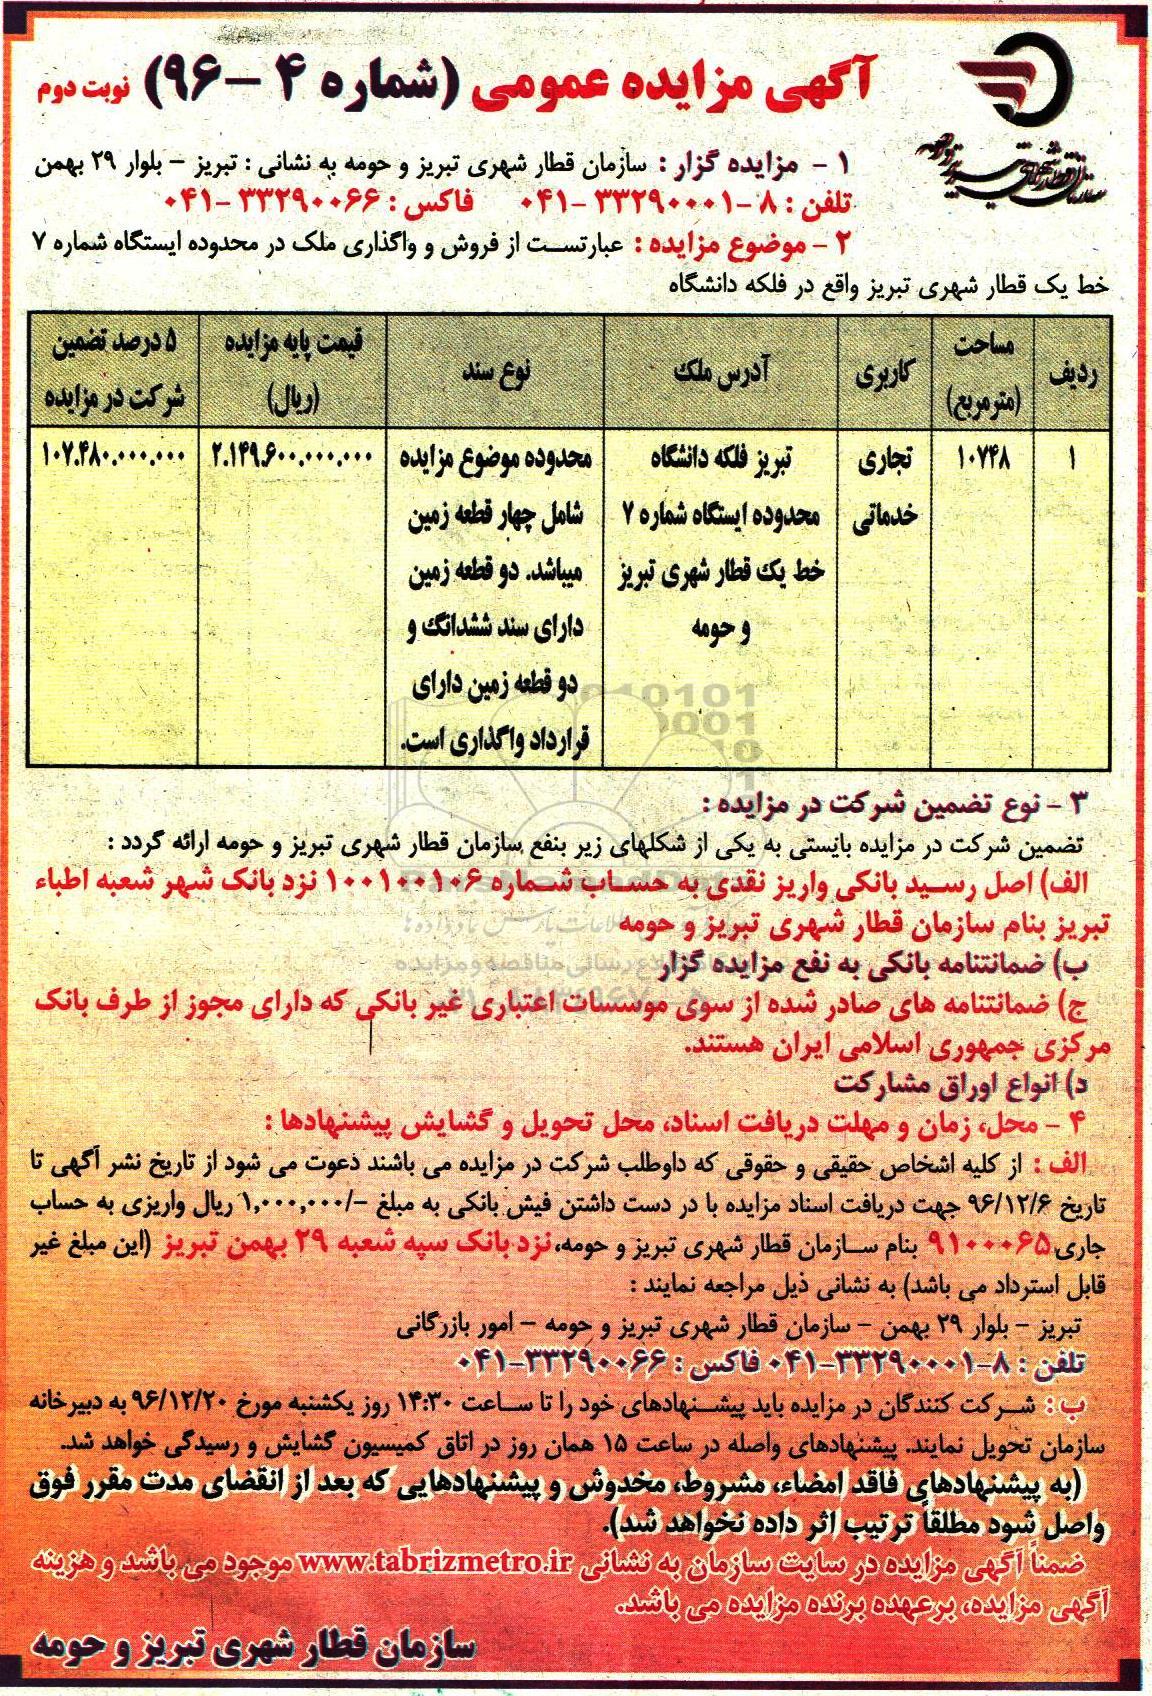 آگهی مزایده عمومی (شماره ۴ – ۹۶) نوبت دوم
سازمان قطار شهری تبریز و حومه
۱ – مزایده گزار : سازمان قطار شهری تبریز و حومه به نشانی : تبریز – بلوار ۲۹ بهمن
تلفن : ۸ –۳۳۲۹۰۰۰۱ –۰۴۱ فاکس : ۳۳۲۹۰۰۶۶ –۰۴۱
۲ – موضوع مزایده : عبارتست از فروش و واگذاری ملک در محدوده ایستگاه شماره ۷
خط یک قطار شهری تبریز واقع در فلکه دانشگاه
ردیف
مساحت
(مترمربع)
کاربری
آدرس ملک
نوع سند
قیمت پایه مزایده
(ریال)
۵ درصد تضمین
شرکت در مزایده
۱
۱۰۷۴۸
تجاری
خدماتی
تبریز فلکه دانشگاه
محدوده ایستگاه شماره ۷
خط یک قطار شهری تبریز
و حومه
محدوده موضوع مزایده
شامل چهار قطعه زمین
میباشد. دو قطعه زمین
دارای سند ششدانگ و
دو قطعه زمین دارای
قرارداد واگذاری است.
۲.۱۴۹.۶۰۰.۰۰۰.۰۰۰
۱۰۷.۴۸۰.۰۰۰.۰۰۰
۳ – نوع تضمین شرکت در مزایده :
تضمین شرکت در مزایده بایستی به یکی از شکلهای زیر بنفع سازمان قطار شهری تبریز و حومه ارائه گردد :
الف) اصل رسید بانکی واریز نقدی به حساب شماره ۱۰۰۱۰۰۱۰۶ نزد بانک شهر شعبه اطباء
تبریز بنام سازمان قطار شهری تبریز و حومه
ب) ضمانتنامه بانکی به نفع مزایده گزار
ج) ضمانتنامه های صادر شده از سوی موسسات اعتباری غیر بانکی که دارای مجوز از طرف بانک
مرکزی جمهوری اسلامی ایران هستند.
د) انواع اوراق مشارکت
۴ – محل، زمان و مهلت دریافت اسناد، محل تحویل و گشایش پیشنهادها :
الف : از کلیه اشخاص حقیقی و حقوقی که داوطلب شرکت در مزایده می باشند دعوت می شود از تاریخ نشر آگهی تا
تاریخ ۹۶/۱۲/۶ جهت دریافت اسناد مزایده با در دست داشتن فیش بانکی به مبلغ –/۱,۰۰۰,۰۰۰ ریال واریزی به حساب
جاری ۹۱۰۰۰۶۵ بنام سازمان قطار شهری تبریز و حومه، نزد بانک سپه شعبه ۲۹ بهمن تبریز (این مبلغ غیر
قابل استرداد می باشد) به نشانی ذیل مراجعه نمایند :
تبریز – بلوار ۲۹ بهمن – سازمان قطار شهری تبریز و حومه – امور بازرگانی
تلفن : ۸–۳۳۲۹۰۰۰۱–۰۴۱ فاکس : ۳۳۲۹۰۰۶۶–۰۴۱
ب : شرکت کنندگان در مزایده باید پیشنهادهای خود را تا ساعت ۱۴:۳۰ روز یکشنبه مورخ ۹۶/۱۲/۲۰ به دبیرخانه
سازمان تحویل نمایند. پیشنهادهای واصله در ساعت ۱۵ همان روز در اتاق کمیسیون گشایش و رسیدگی خواهد شد.
(به پیشنهادهای فاقد امضاء، مشروط، مخدوش و پیشنهادهایی که بعد از انقضای مدت مقرر فوق
واصل شود مطلقاً ترتیب اثر داده نخواهد شد).
ضمناً آگهی مزایده در سایت سازمان به نشانی www.tabrizmetro.ir موجود می باشد و هزینه
آگهی مزایده، برعهده برنده مزایده می باشد.
سازمان قطار شهری تبریز و حومه